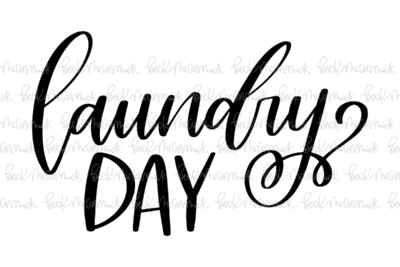 laundry
DAY